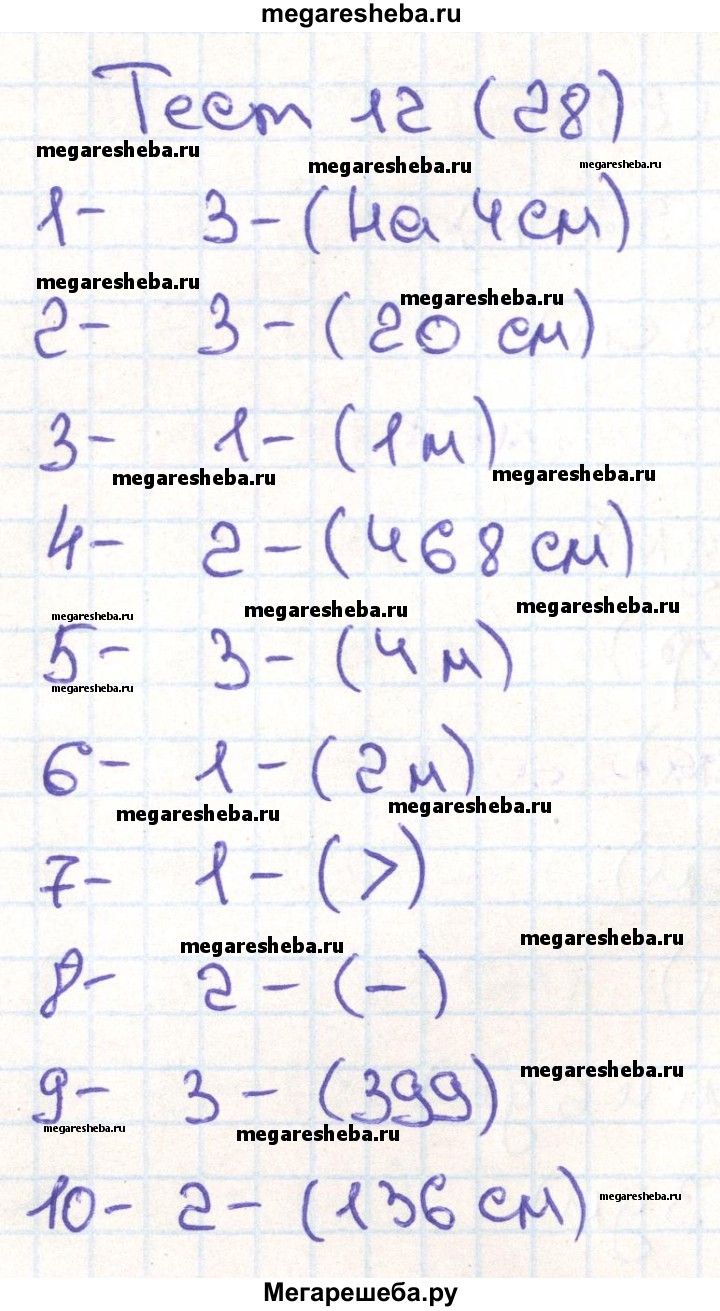 megaresheba.ru
Тест 12 (28)
megaresheba.ru
megaresheba.ru
megaresheba.ru
1- 3-(на 4 см)
megaresheba.ru
megaresheba.ru
2- 3-(20 см)
3- 1-(1м)
megaresheba.ru
megaresheba.ru
4- 2-(468 см)
megaresheba.ru
megaresheba.ru
megaresheba.ru
5- 3-(4м)
megaresheba.ru
6- 1-(2м)
megaresheba.ru
megaresheba.ru
7- 1-(>)
megaresheba.ru
megaresheba.ru
8- 2-(-)
9- 3-(399)
megaresheba.ru
megaresheba.ru
megaresheba.ru
10- 2-(136 см)
megaresheba.ru
Мегарешеба.ру